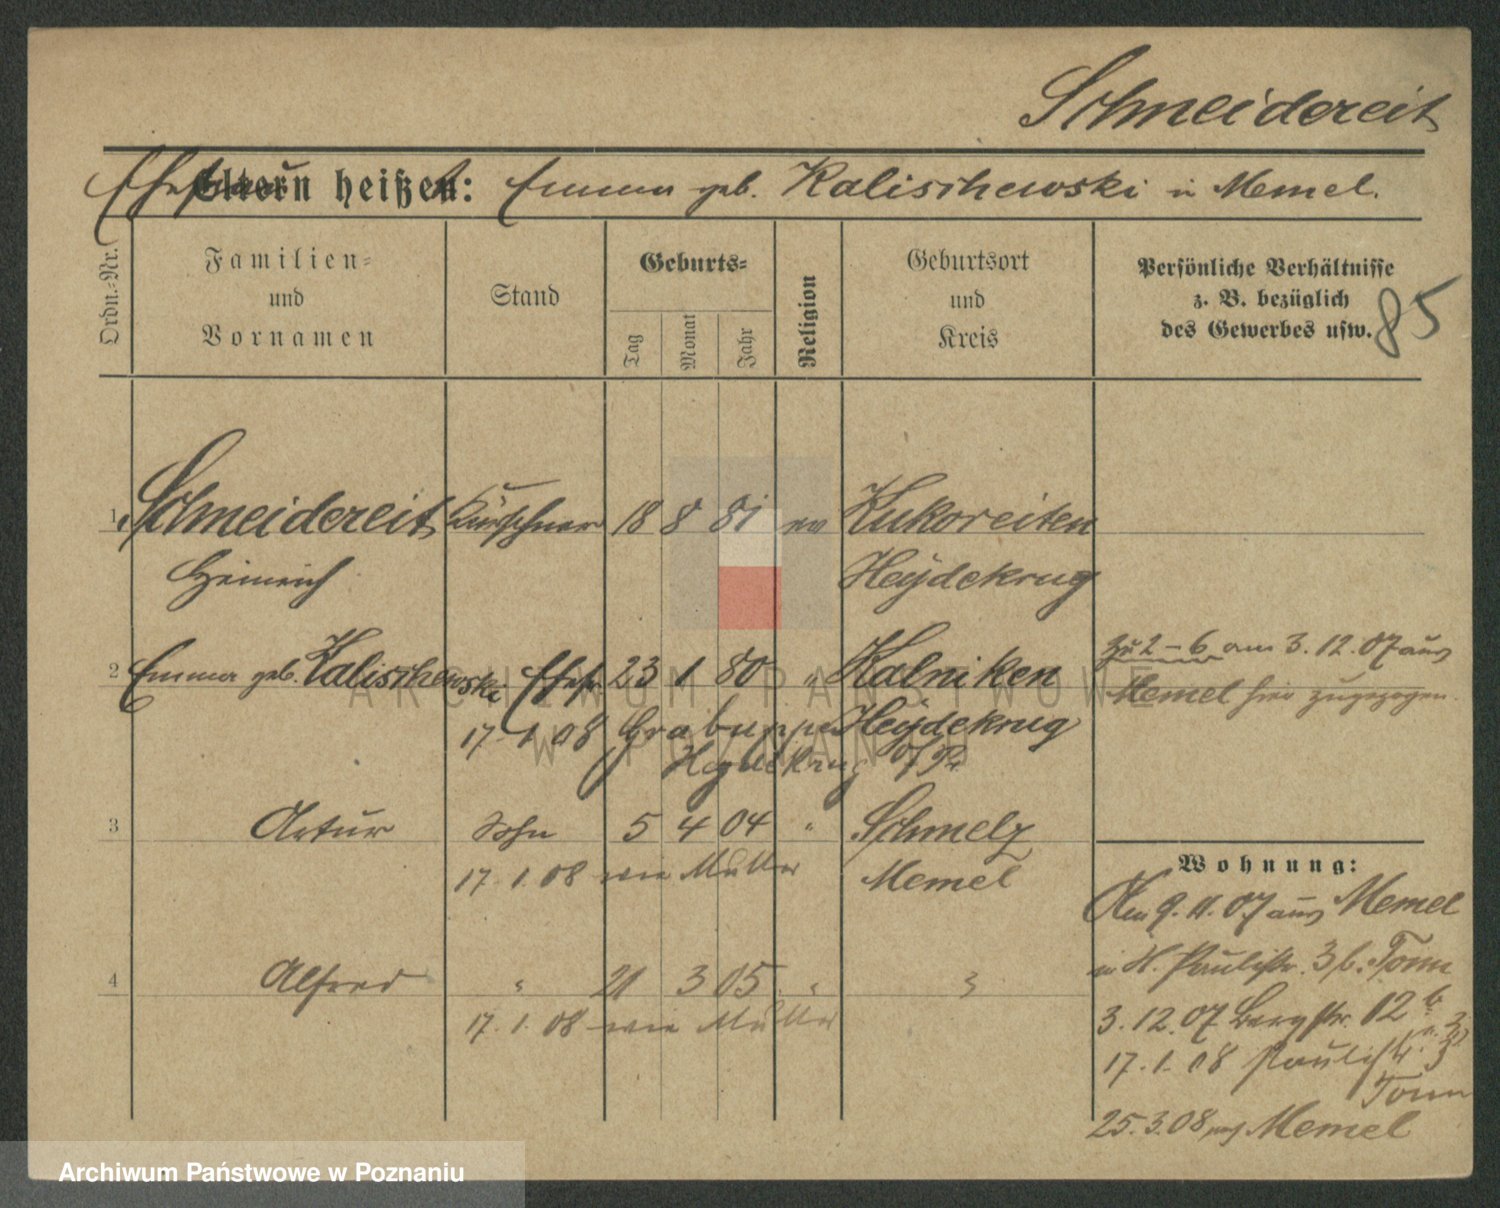 Schneidereit
Eltern heißen: Emma geb. Kalischewski in Memel.
Ordn.-Nr.
Familien- und Vornamen
Stand
Geburts-
Tag
Monat
Jahr
Religion
Geburtsort und Kreis
Persönliche Verhältnisse
z. B. bezüglich
des Gewerbes usw.
85
1 Schneidereit Kürschner 18 8 81 ev Kukoreiten
Heinrich Heydekrug
2 Emma geb. Kalischewski Ehefr. 23 1 80 " Kalniken
zu 2-6 am 3.12.07 aus
Memel hier zugezogen.
17. 1. 08 Grabuppen Heydekrug
Heydekrug O/Pr.
3 Artur Sohn 5 4 04 " Schmelz
17. 1. 08 wie Mutter Memel
4 Alfred " 21 3 05 " "
17. 1. 08 wie Mutter
Wohnung:
Am 9. 11. 07 aus Memel
in St. Paulistr. 3 b. Tonn
3. 12. 07 Bergstr. 12 b
17. 1. 08 Paulistr. 3
Tonn
25. 3. 08 nach Memel
ARCHIWUM PAŃSTWOWE
W POZNANIU
Archiwum Państwowe w Poznaniu